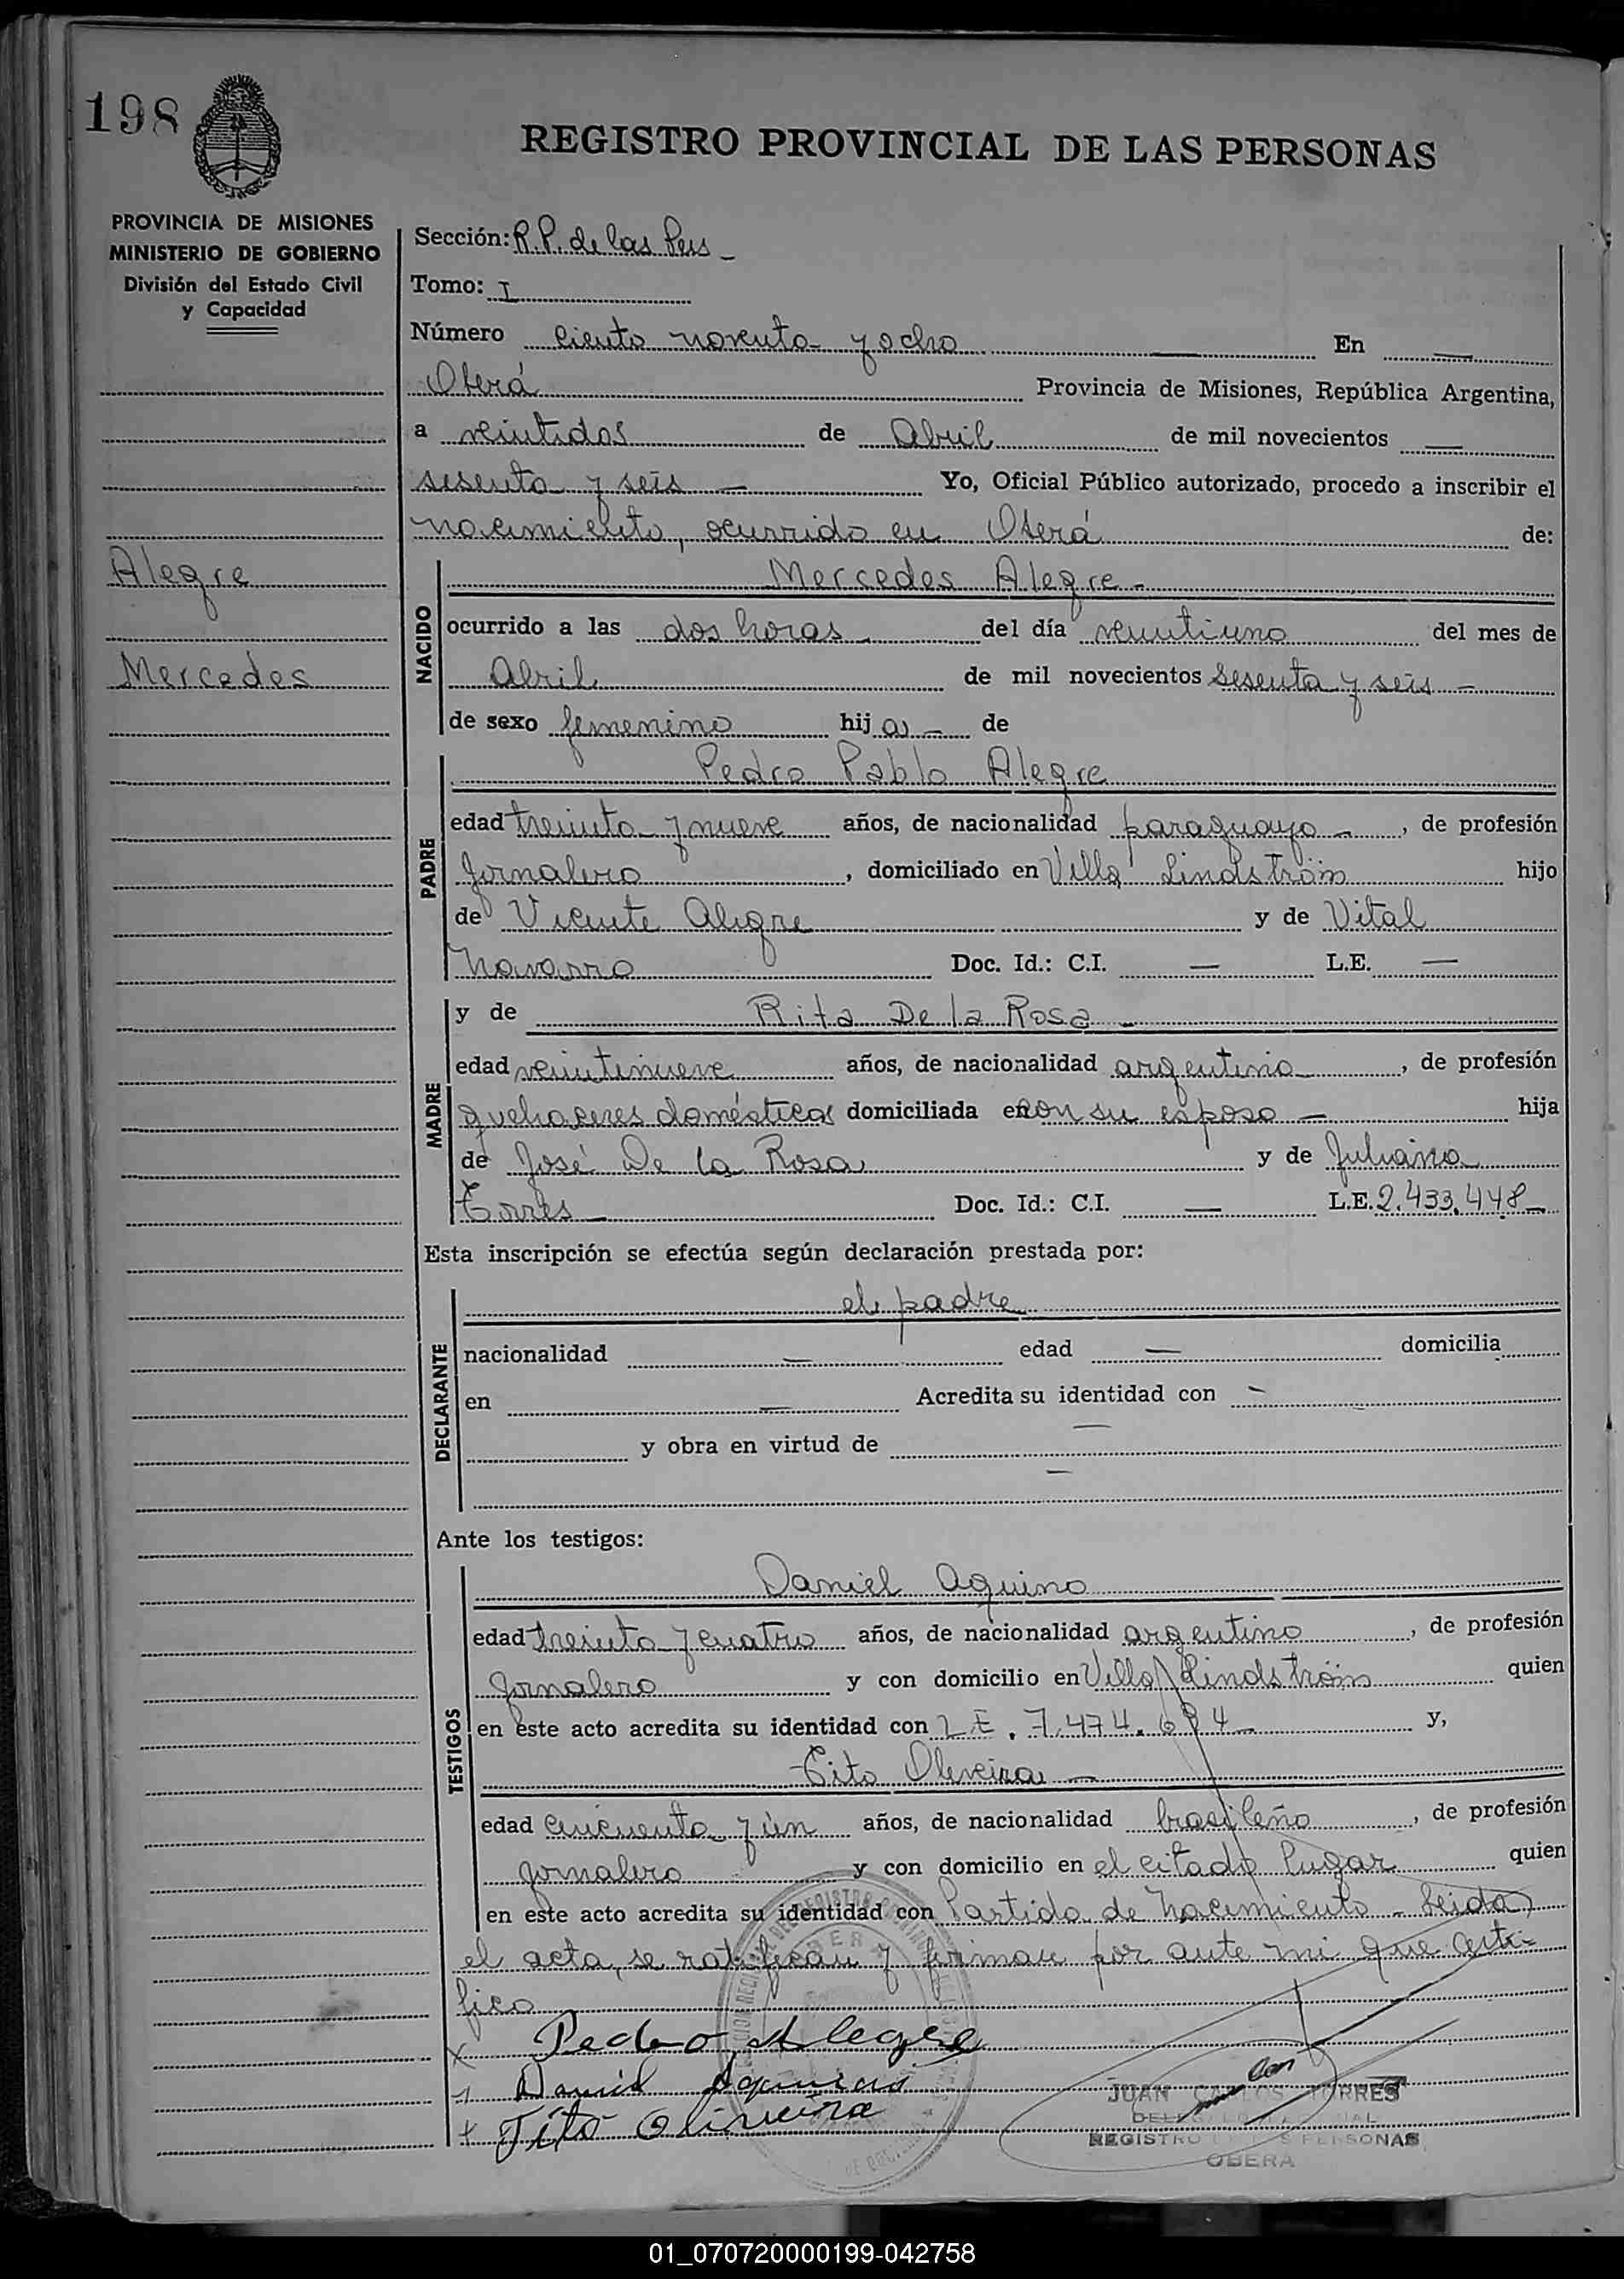 198
REGISTRO PROVINCIAL DE LAS PERSONAS
PROVINCIA DE MISIONES
MINISTERIO DE GOBIERNO
División del Estado Civil
y Capacidad
Alegre
Mercedes
Sección: R.P. de las Pers -
Tomo: I
Número ciento noventa y ocho — En —
Oberá Provincia de Misiones, República Argentina,
a veintidos de Abril de mil novecientos —
sesenta y seis — Yo, Oficial Público autorizado, procedo a inscribir el
nacimiento, ocurrido en Oberá de:
NACIDO
Mercedes Alegre -
ocurrido a las dos horas - del día veintiuno del mes de
Abril de mil novecientos sesenta y seis -
de sexo femenino hija - de
PADRE
Pedro Pablo Alegre
edad treinta y nueve años, de nacionalidad paraguayo -, de profesión
jornalero, domiciliado en Villa Lindström hijo
de Vicente Alegre y de Vital
Navarro Doc. Id.: C.I. — L.E. —
MADRE
y de Rita De la Rosa -
edad veintinueve años, de nacionalidad argentina, de profesión
quehaceres domésticos domiciliada en con su esposo - hija
de José De la Rosa y de Juliana
Torres - Doc. Id.: C.I. — L.E. 2.433.448 -
Esta inscripción se efectúa según declaración prestada por:
DECLARANTE
el padre
nacionalidad — edad — domicilia
en — Acredita su identidad con -
y obra en virtud de —
—
Ante los testigos:
TESTIGOS
Daniel Aquino
edad treinta y cuatro años, de nacionalidad argentino, de profesión
jornalero y con domicilio en Villa Lindström quien
en este acto acredita su identidad con L E. 7.474.694 - y,
Tito Oliveira -
edad cincuenta y ún años, de nacionalidad brasileño, de profesión
jornalero y con domicilio en el citado lugar quien
en este acto acredita su identidad con Partida de Nacimiento - Leida
el acta, se ratifican y firman por ante mi que certi-
fico
x Pedro Alegre
Daniel Aquino
x Tito Oliveira
JUAN CARLOS TORRES
REGISTRO PERSONAS
OBERA
01_070720000199-042758